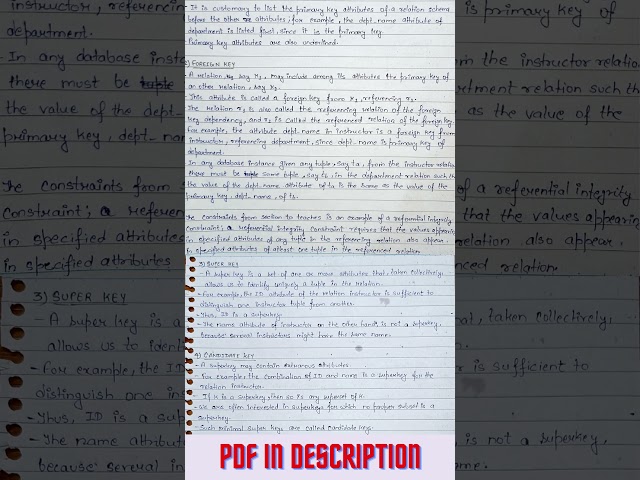 It is customary to list the primary key attributes of a relation schema
before the other attributes; for example, the dept_name attribute of
department is listed first, since it is the primary key.
Primary key attributes are also underlined.
2) FOREIGN KEY
A relation, say r1, may include among its attributes the primary key of
an other relation, say r2.
This attribute is called a foreign key from r1, referencing r2.
The relation r1 is also called the referencing relation of the foreign
key dependency, and r2 is called the referenced relation of the foreign key.
For example, the attribute dept_name in instructor is a foreign key from
instructor, referencing department, since dept_name is primary key of
department.
In any database instance given any tuple, say ta, from the instructor relation
there must be some tuple, say tb, in the department relation such that
the value of the dept_name attribute of ta is the same as the value of the
primary key, dept_name, of tb.
The constraints from section to teaches is an example of a referential integrity
constraint; a referential integrity constraint requires that the values appearing
in specified attributes of any tuple in the referencing relation also appear
in specified attributes of atleast one tuple in the referenced relation
3) SUPER KEY
- A super key is a set of one or more attributes that, taken collectively,
allows us to identify uniquely a tuple in the relation.
- For example, the ID attribute of the relation instructor is sufficient to
distinguish one instructor tuple from another.
- Thus, ID is a superkey.
- The name attribute of instructor, on the other hand, is not a superkey,
because several instructors might have the same name.
4) CANDIDATE KEY
- A superkey may contain extraneous attributes.
- For example, the combination of ID and name is a superkey for the
relation instructor.
- If K is a superkey, then so is any superset of K.
- We are often interested in superkeys for which no proper subset is a
superkey.
- Such minimal super keys are called candidate key.
PDF IN DESCRIPTION